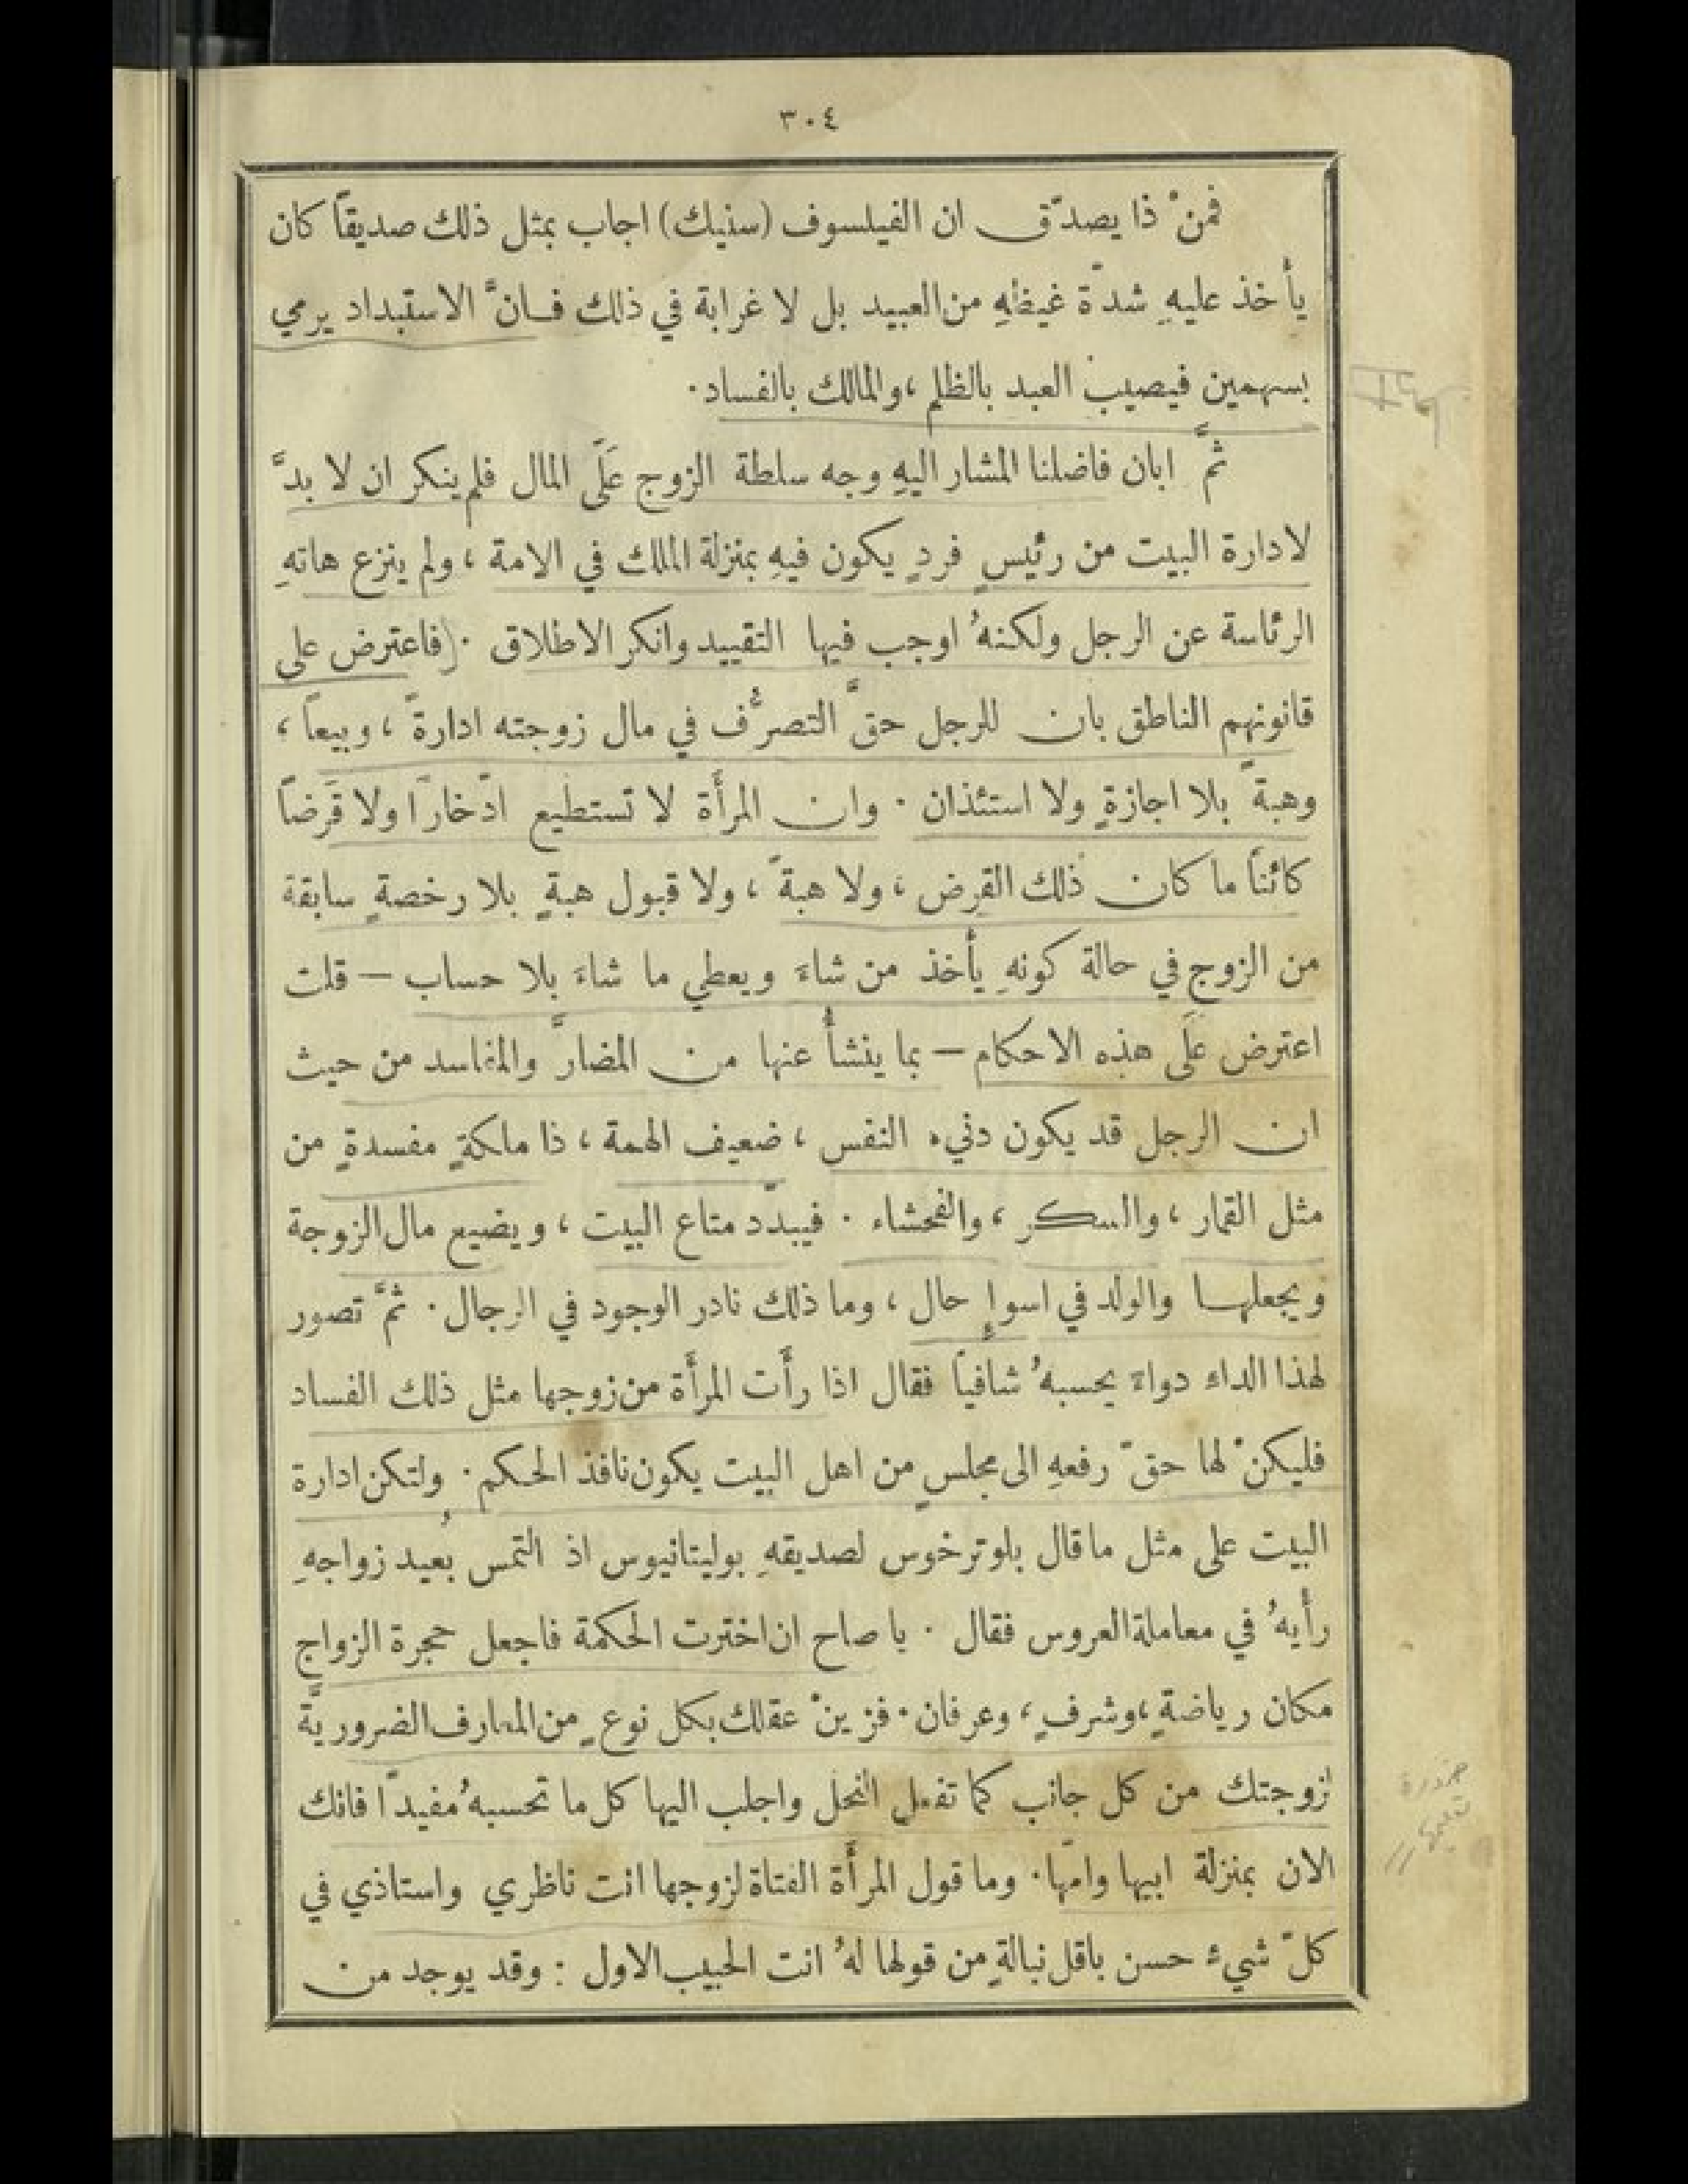 ٣٠٤
فمنْ ذا يصدّق ان الفيلسوف (سنيك) اجاب بمثل ذلك صديقاً كان
يأخذ عليهِ شدّة غيظهِ من العبيد بل لا غرابة في ذلك فانَّ الاستبداد يرمي
بسهمين فيصيب العبد بالظلم ، والمالك بالفساد .
ثمَّ ابان فاضلنا المشار اليهِ وجه سلطة الزوج عَلَى المال فلم ينكر ان لا بدَّ
لادارة البيت من رئيسٍ فردٍ يكون فيهِ بمنزلة الملك في الامة ، ولم ينزع هاتهِ
الرئاسة عن الرجل ولكنهُ اوجب فيها التقييد وانكر الاطلاق . (فاعترض على
قانونهم الناطق بان للرجل حقَّ التصرُّف في مال زوجته ادارةً ، وبيعاً ،
وهبةً بلا اجازةٍ ولا استئذان . وان المرأة لا تستطيع ادّخاراً ولا قَرضاً
كائناً ما كان ذلك القرض ، ولا هبةً ، ولا قبول هبةٍ بلا رخصةٍ سابقة
من الزوج في حالة كونهِ يأخذ من شاءَ ويعطي ما شاءَ بلا حساب — قلت
اعترض عَلَى هذه الاحكام — بما ينشأُ عنها من المضارّ والمفاسد من حيث
ان الرجل قد يكون دنيء النفس ، ضعيف الهمة ، ذا ملكةٍ مفسدةٍ من
مثل القمار ، والسكر ، والفحشاء . فيبدّد متاع البيت ، ويضيع مال الزوجة
ويجعلها والولد في اسوإِ حال ، وما ذلك نادر الوجود في الرجال . ثمَّ تصور
لهذا الداء دواءً يحسبهُ شافياً فقال اذا رأَت المرأَة من زوجها مثل ذلك الفساد
فليكنْ لها حقّ رفعهِ الى مجلسٍ من اهل البيت يكون نافذ الحكم . ولتكن ادارة
البيت على مثل ما قال بلوترخوس لصديقهِ بوليتانيوس اذ التمس بُعيد زواجهِ
رأيهُ في معاملة العروس فقال . يا صاح ان اخترت الحكمة فاجعل حجرة الزواج
مكان رياضةٍ ، وشرفٍ ، وعرفان . فزينْ عقلك بكل نوعٍ من المعارف الضروريَّة
لزوجتك من كل جانب كما تفعل النحل واجلب اليها كل ما تحسبهُ مفيداً فانك
الان بمنزلة ابيها وامّها . وما قول المرأَة الفتاة لزوجها انت ناظري واستاذي في
كلّ شيءٍ حسن باقل نبالةٍ من قولها لهُ انت الحبيب الاول : وقد يوجد من
ضرورة
تعليمها